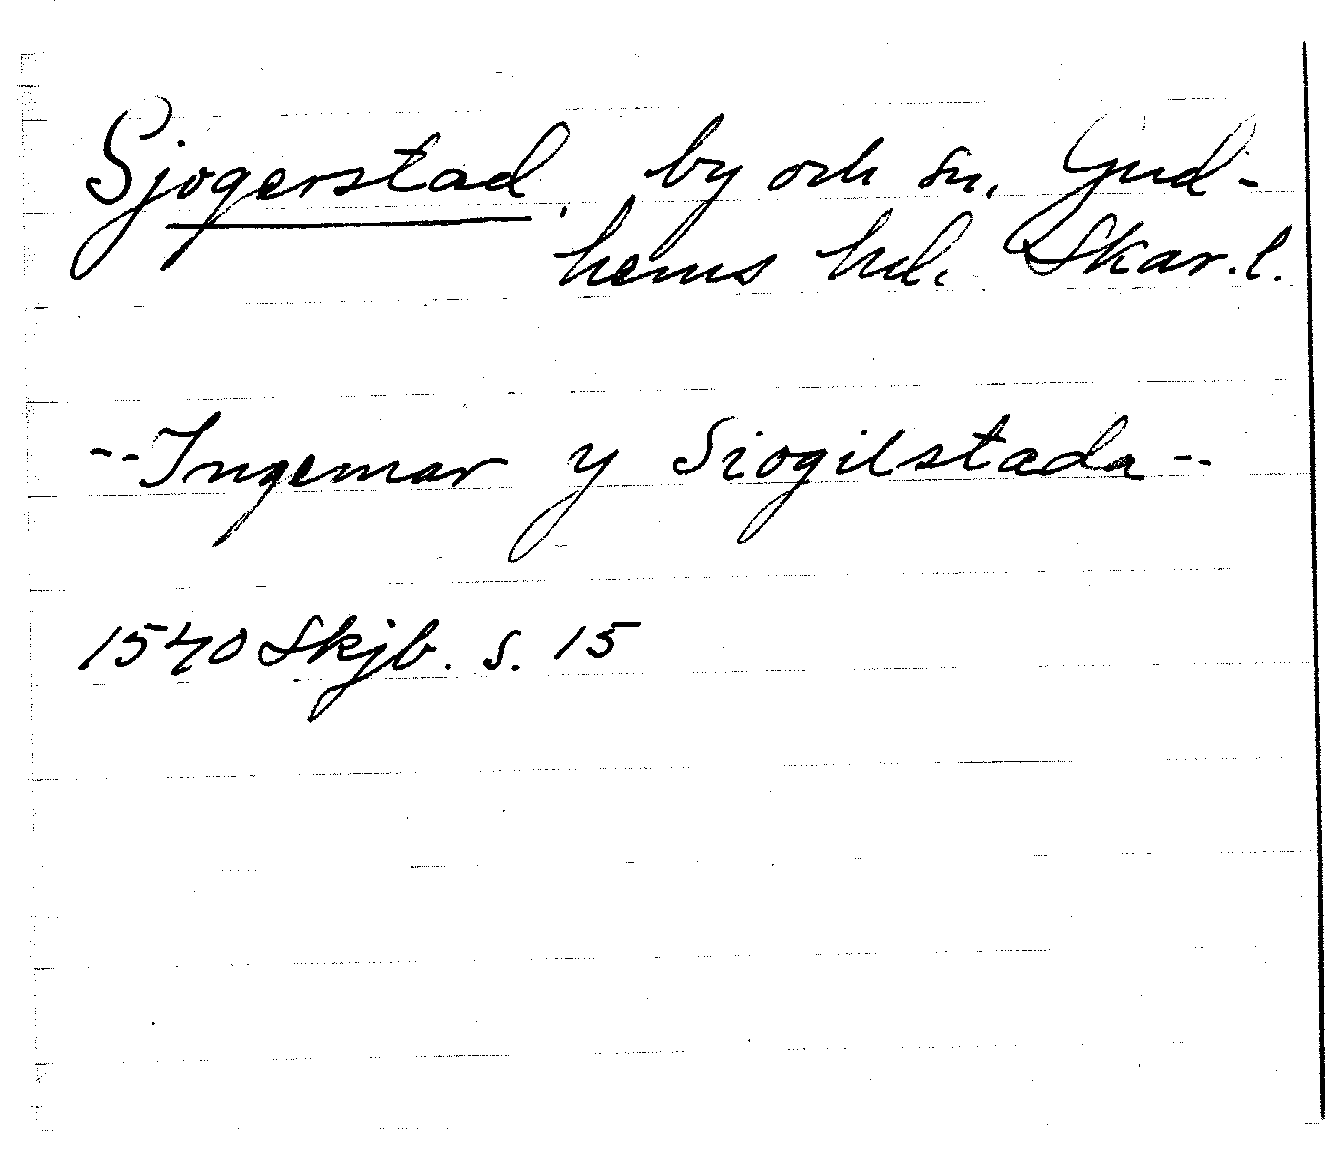 Sjogerstad, by och sn. Gud-
hems hd. Skar.l.
--Ingemar y Siogilstada--
1540 Skjb. s. 15